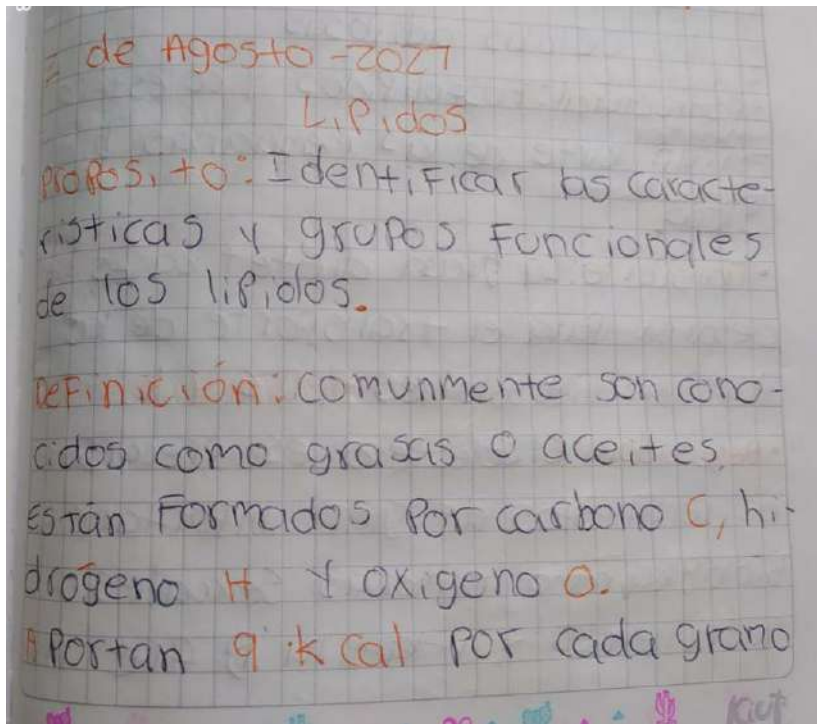 de Agosto-2021
Lipidos
Proposito: Identificar las caracte-
risticas y grupos Funcionales
de los lipidos.
Definición: comunmente son cono-
cidos como grasas o aceites,
Están Formados Por carbono C, hi-
drógeno H Y oxigeno O.
Aportan 9 kcal por cada gramo